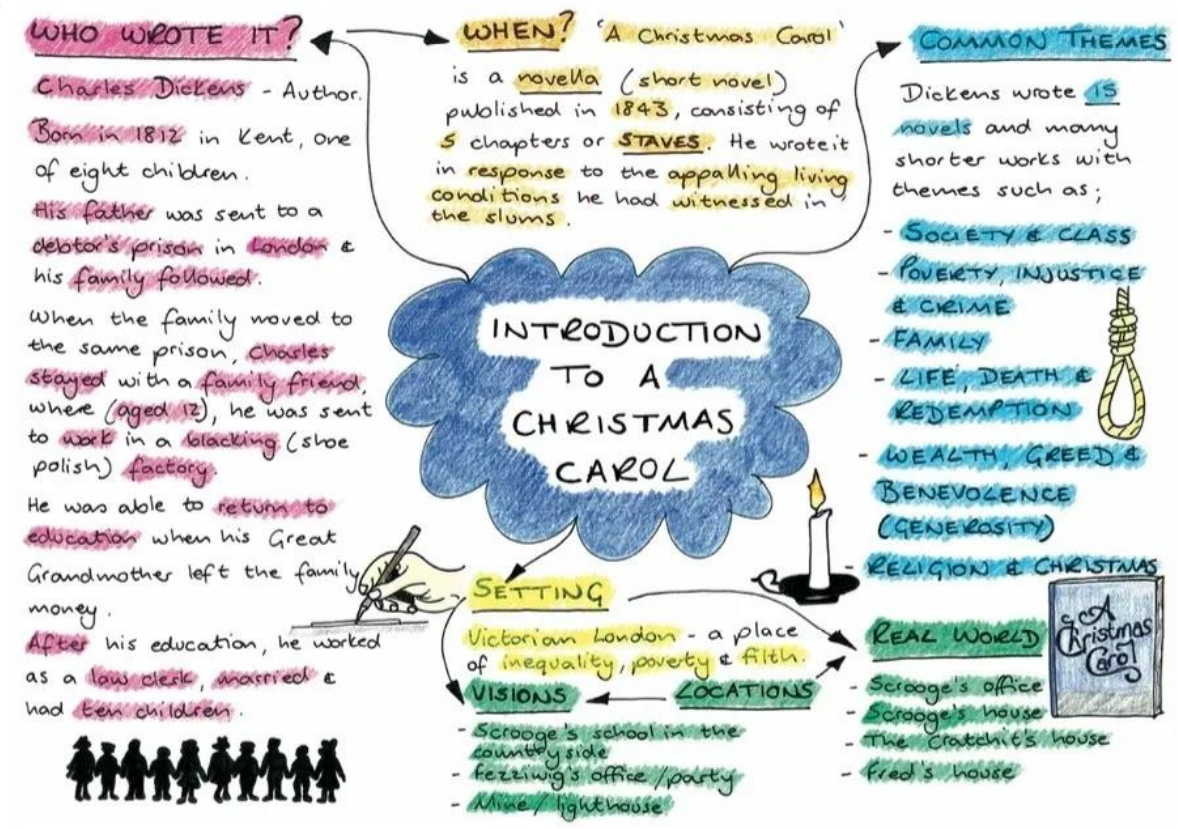 WHO WROTE IT?
Charles Dickens - Author.
Born in 1812 in Kent, one
of eight children.
His father was sent to a
debtor's prison in London &
his family followed.
When the family moved to
the same prison, Charles
stayed with a family friend,
where (aged 12), he was sent
to work in a blacking (shoe
polish) factory.
He was able to return to
education when his Great
Grandmother left the family
money.
After his education, he worked
as a law clerk, married &
had ten children.
WHEN? 'A Christmas Carol'
is a novella (short novel)
published in 1843, consisting of
5 chapters or STAVES. He wrote it
in response to the appalling living
conditions he had witnessed in
the slums.
INTRODUCTION
TO A
CHRISTMAS
CAROL
COMMON THEMES
Dickens wrote 15
novels and many
shorter works with
themes such as;
- SOCIETY & CLASS
- POVERTY, INJUSTICE
& CRIME
- FAMILY
- LIFE, DEATH &
REDEMPTION
- WEALTH, GREED &
BENEVOLENCE
(GENEROSITY)
- RELIGION & CHRISTMAS
SETTING
Victorian London - a place
of inequality, poverty & filth.
VISIONS
LOCATIONS
- Scrooge's school in the
countryside
- Fezziwig's office/party
- Mine/lighthouse
REAL WORLD
- Scrooge's office
- Scrooge's house
- The Cratchit's house
- Fred's house
A
Christmas
Carol